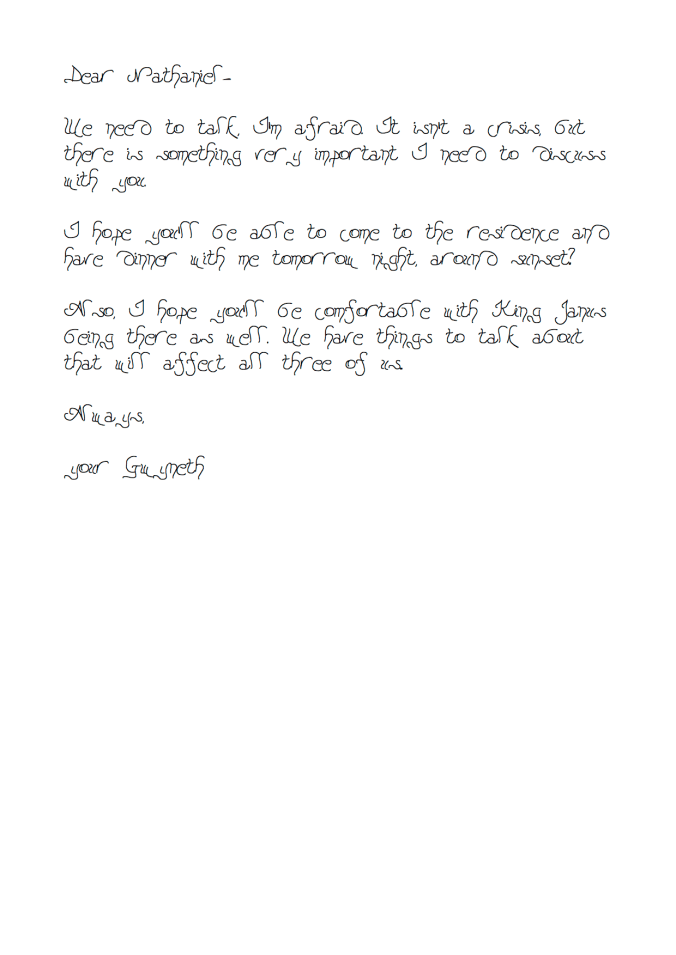 Dear Nathaniel-
We need to talk, I'm afraid. It isn't a crisis, but
there is something very important I need to discuss
with you.
I hope you'll be able to come to the residence and
have dinner with me tomorrow night, around sunset?
Also, I hope you'll be comfortable with King Janus
being there as well. We have things to talk about
that will affect all three of us.
Always,
your Gwyneth